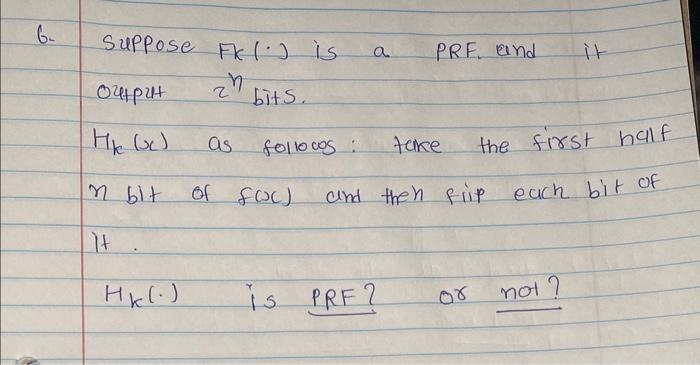 6. Suppose Fk(.) is a PRF. and it
output 2^n bits.
Hk(x) as follows: take the first half
n bit of f(x) and then flip each bit of
it.
Hk(.) is PRF? or not?